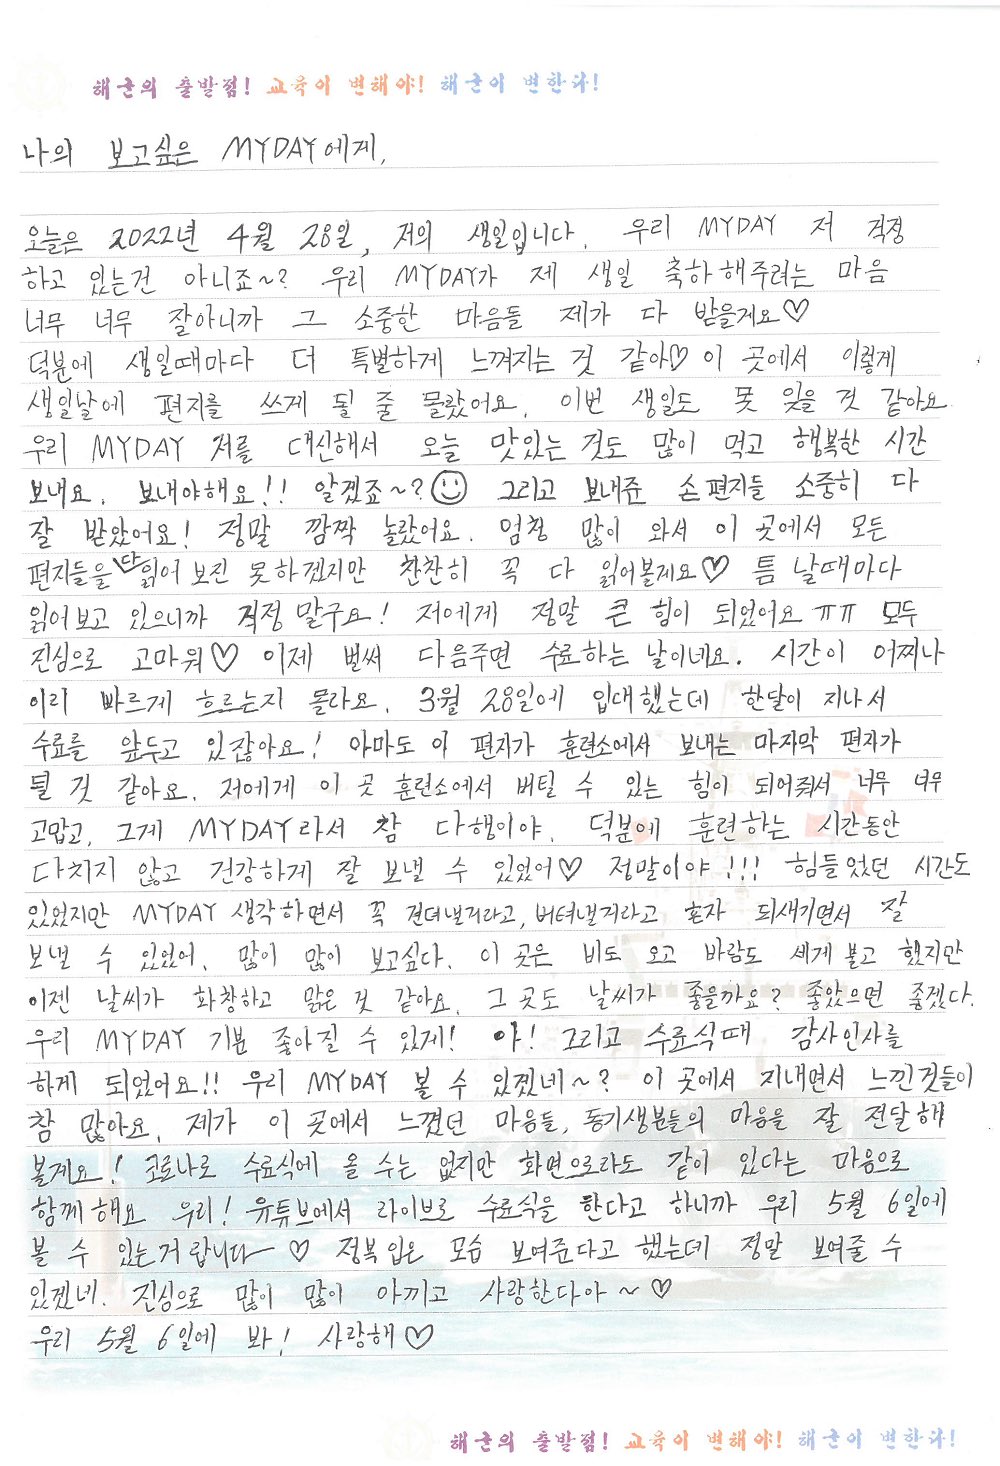 해군의 출발점! 교육이 변해야! 해군이 변한다!
나의 보고싶은 MYDAY에게,
오늘은 2022년 4월 28일, 저의 생일입니다. 우리 MYDAY 저 걱정
하고 있는건 아니죠~? 우리 MYDAY가 제 생일 축하해주려는 마음
너무 너무 잘아니까 그 소중한 마음들 제가 다 받을게요♡
덕분에 생일때마다 더 특별하게 느껴지는 것 같아♡ 이 곳에서 이렇게
생일날에 편지를 쓰게 될 줄 몰랐어요. 이번 생일도 못 잊을 것 같아요
우리 MYDAY 저를 대신해서 오늘 맛있는 것도 많이 먹고 행복한 시간
보내요. 보내야해요!! 알겠죠~?☺ 그리고 보내준 손편지들 소중히 다
잘 받았어요! 정말 깜짝 놀랐어요. 엄청 많이 와서 이 곳에서 모든
편지들을 다 읽어보진 못하겠지만 찬찬히 꼭 다 읽어볼게요♡ 틈 날때마다
읽어보고 있으니까 걱정말구요! 저에게 정말 큰 힘이 되었어요ㅠㅠ 모두
진심으로 고마워♡ 이제 벌써 다음주면 수료하는 날이네요. 시간이 어찌나
이리 빠르게 흐르는지 몰라요. 3월 28일에 입대했는데 한달이 지나서
수료를 앞두고 있잖아요! 아마도 이 편지가 훈련소에서 보내는 마지막 편지가
될 것 같아요. 저에게 이 곳 훈련소에서 버틸 수 있는 힘이 되어줘서 너무 너무
고맙고, 그게 MYDAY라서 참 다행이야. 덕분에 훈련하는 시간동안
다치지 않고 건강하게 잘 보낼 수 있었어♡ 정말이야!!! 힘들었던 시간도
있었지만 MYDAY 생각하면서 꼭 견뎌낼거라고, 버텨낼거라고 혼자 되새기면서 잘
보낼 수 있었어. 많이 많이 보고싶다. 이 곳은 비도 오고 바람도 세게 불고 했지만
이젠 날씨가 화창하고 맑은 것 같아요. 그 곳도 날씨가 좋을까요? 좋았으면 좋겠다.
우리 MYDAY 기분 좋아질 수 있게! 아! 그리고 수료식때 감사인사를
하게 되었어요!! 우리 MYDAY 볼 수 있겠네~? 이 곳에서 지내면서 느낀것들이
참 많아요. 제가 이 곳에서 느꼈던 마음들, 동기생분들의 마음을 잘 전달해
볼게요! 코로나로 수료식에 올 수는 없지만 화면으로라도 같이 있다는 마음으로
함께해요 우리! 유튜브에서 라이브로 수료식을 한다고 하니까 우리 5월 6일에
볼 수 있는거 랍니다 ♡ 정복입은 모습 보여준다고 했는데 정말 보여줄 수
있겠네. 진심으로 많이 많이 아끼고 사랑한다아~♡
우리 5월 6일에 봐! 사랑해♡
해군의 출발점! 교육이 변해야! 해군이 변한다!